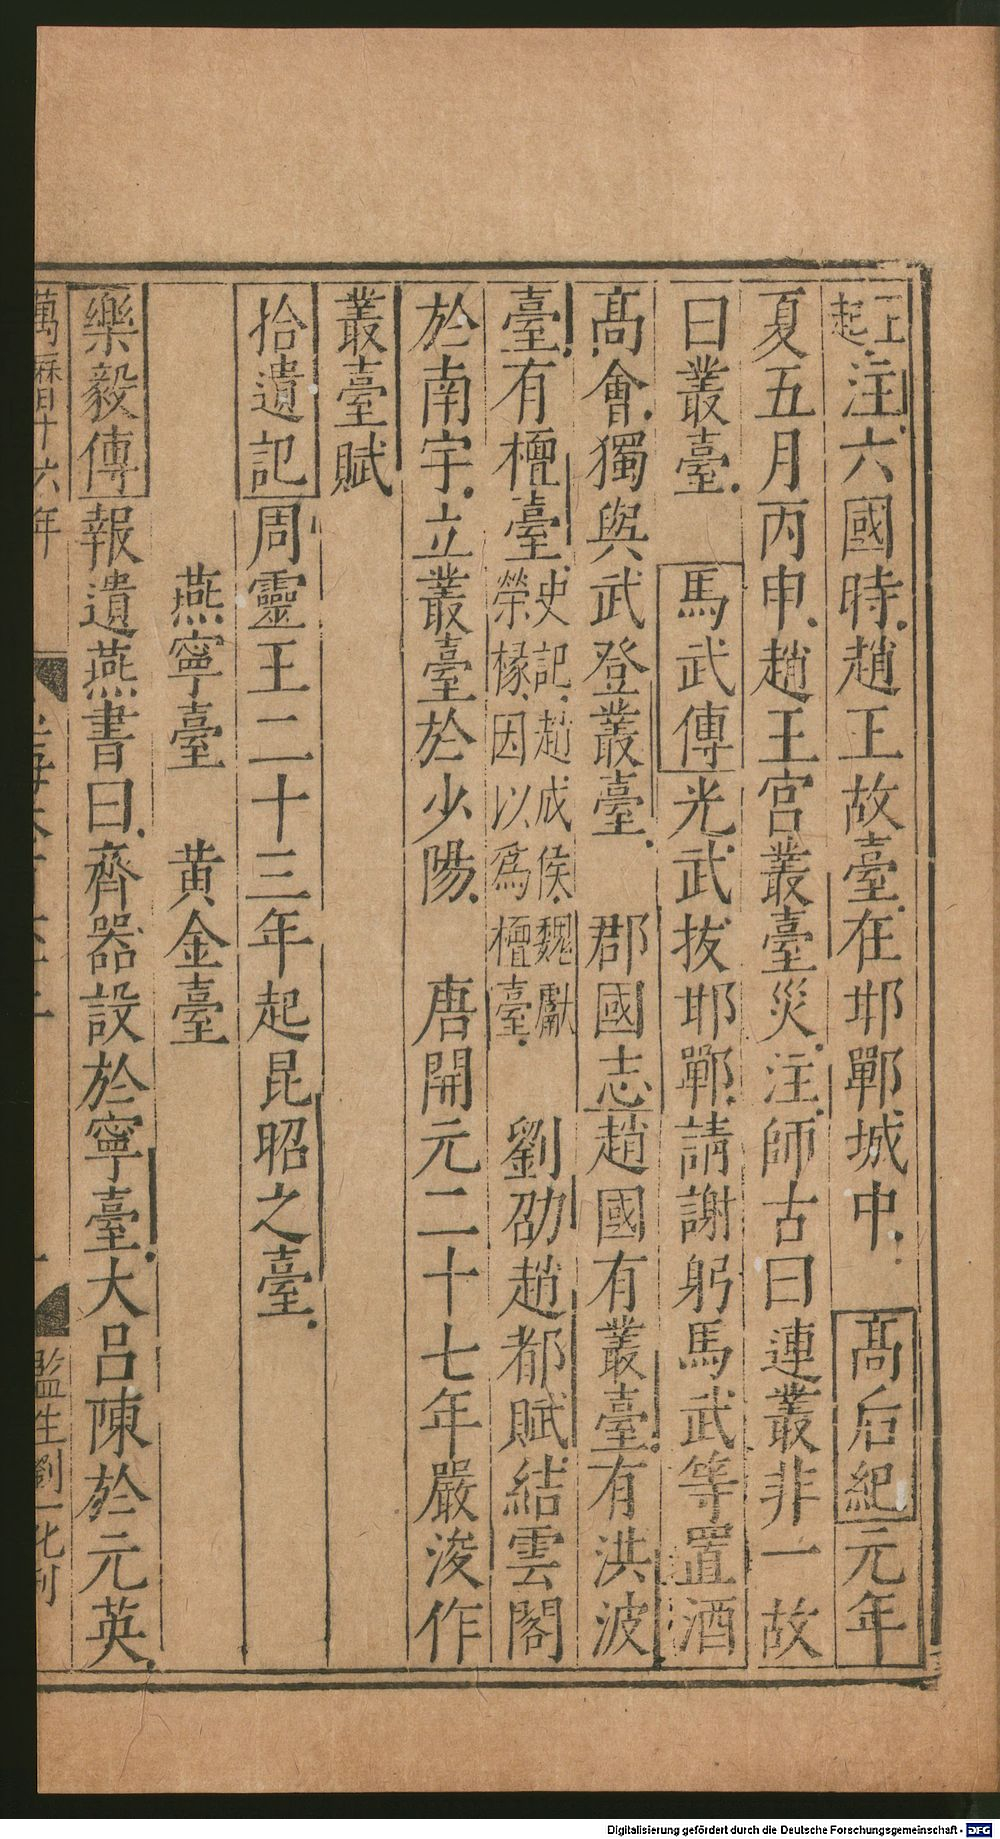 王起注六國時趙王故臺在邯鄲城中　高后紀元年
夏五月丙申趙王宮叢臺災注師古曰連叢非一故
曰叢臺　馬武傳光武拔邯鄲請謝躬馬武等置酒
高會獨與武登叢臺　郡國志趙國有叢臺有洪波
臺有檀臺史記趙成侯魏獻榮椽因以爲檀臺　劉劭趙都賦結雲閣
於南宇立叢臺於少陽　唐開元二十七年嚴浚作
叢臺賦
拾遺記周靈王二十三年起昆昭之臺
燕寧臺　黄金臺
樂毅傳報遺燕書曰齊器設於寧臺大呂陳於元英
萬曆十六年　監生劉一化刊
Digitalisierung gefördert durch die Deutsche Forschungsgemeinschaft - DFG